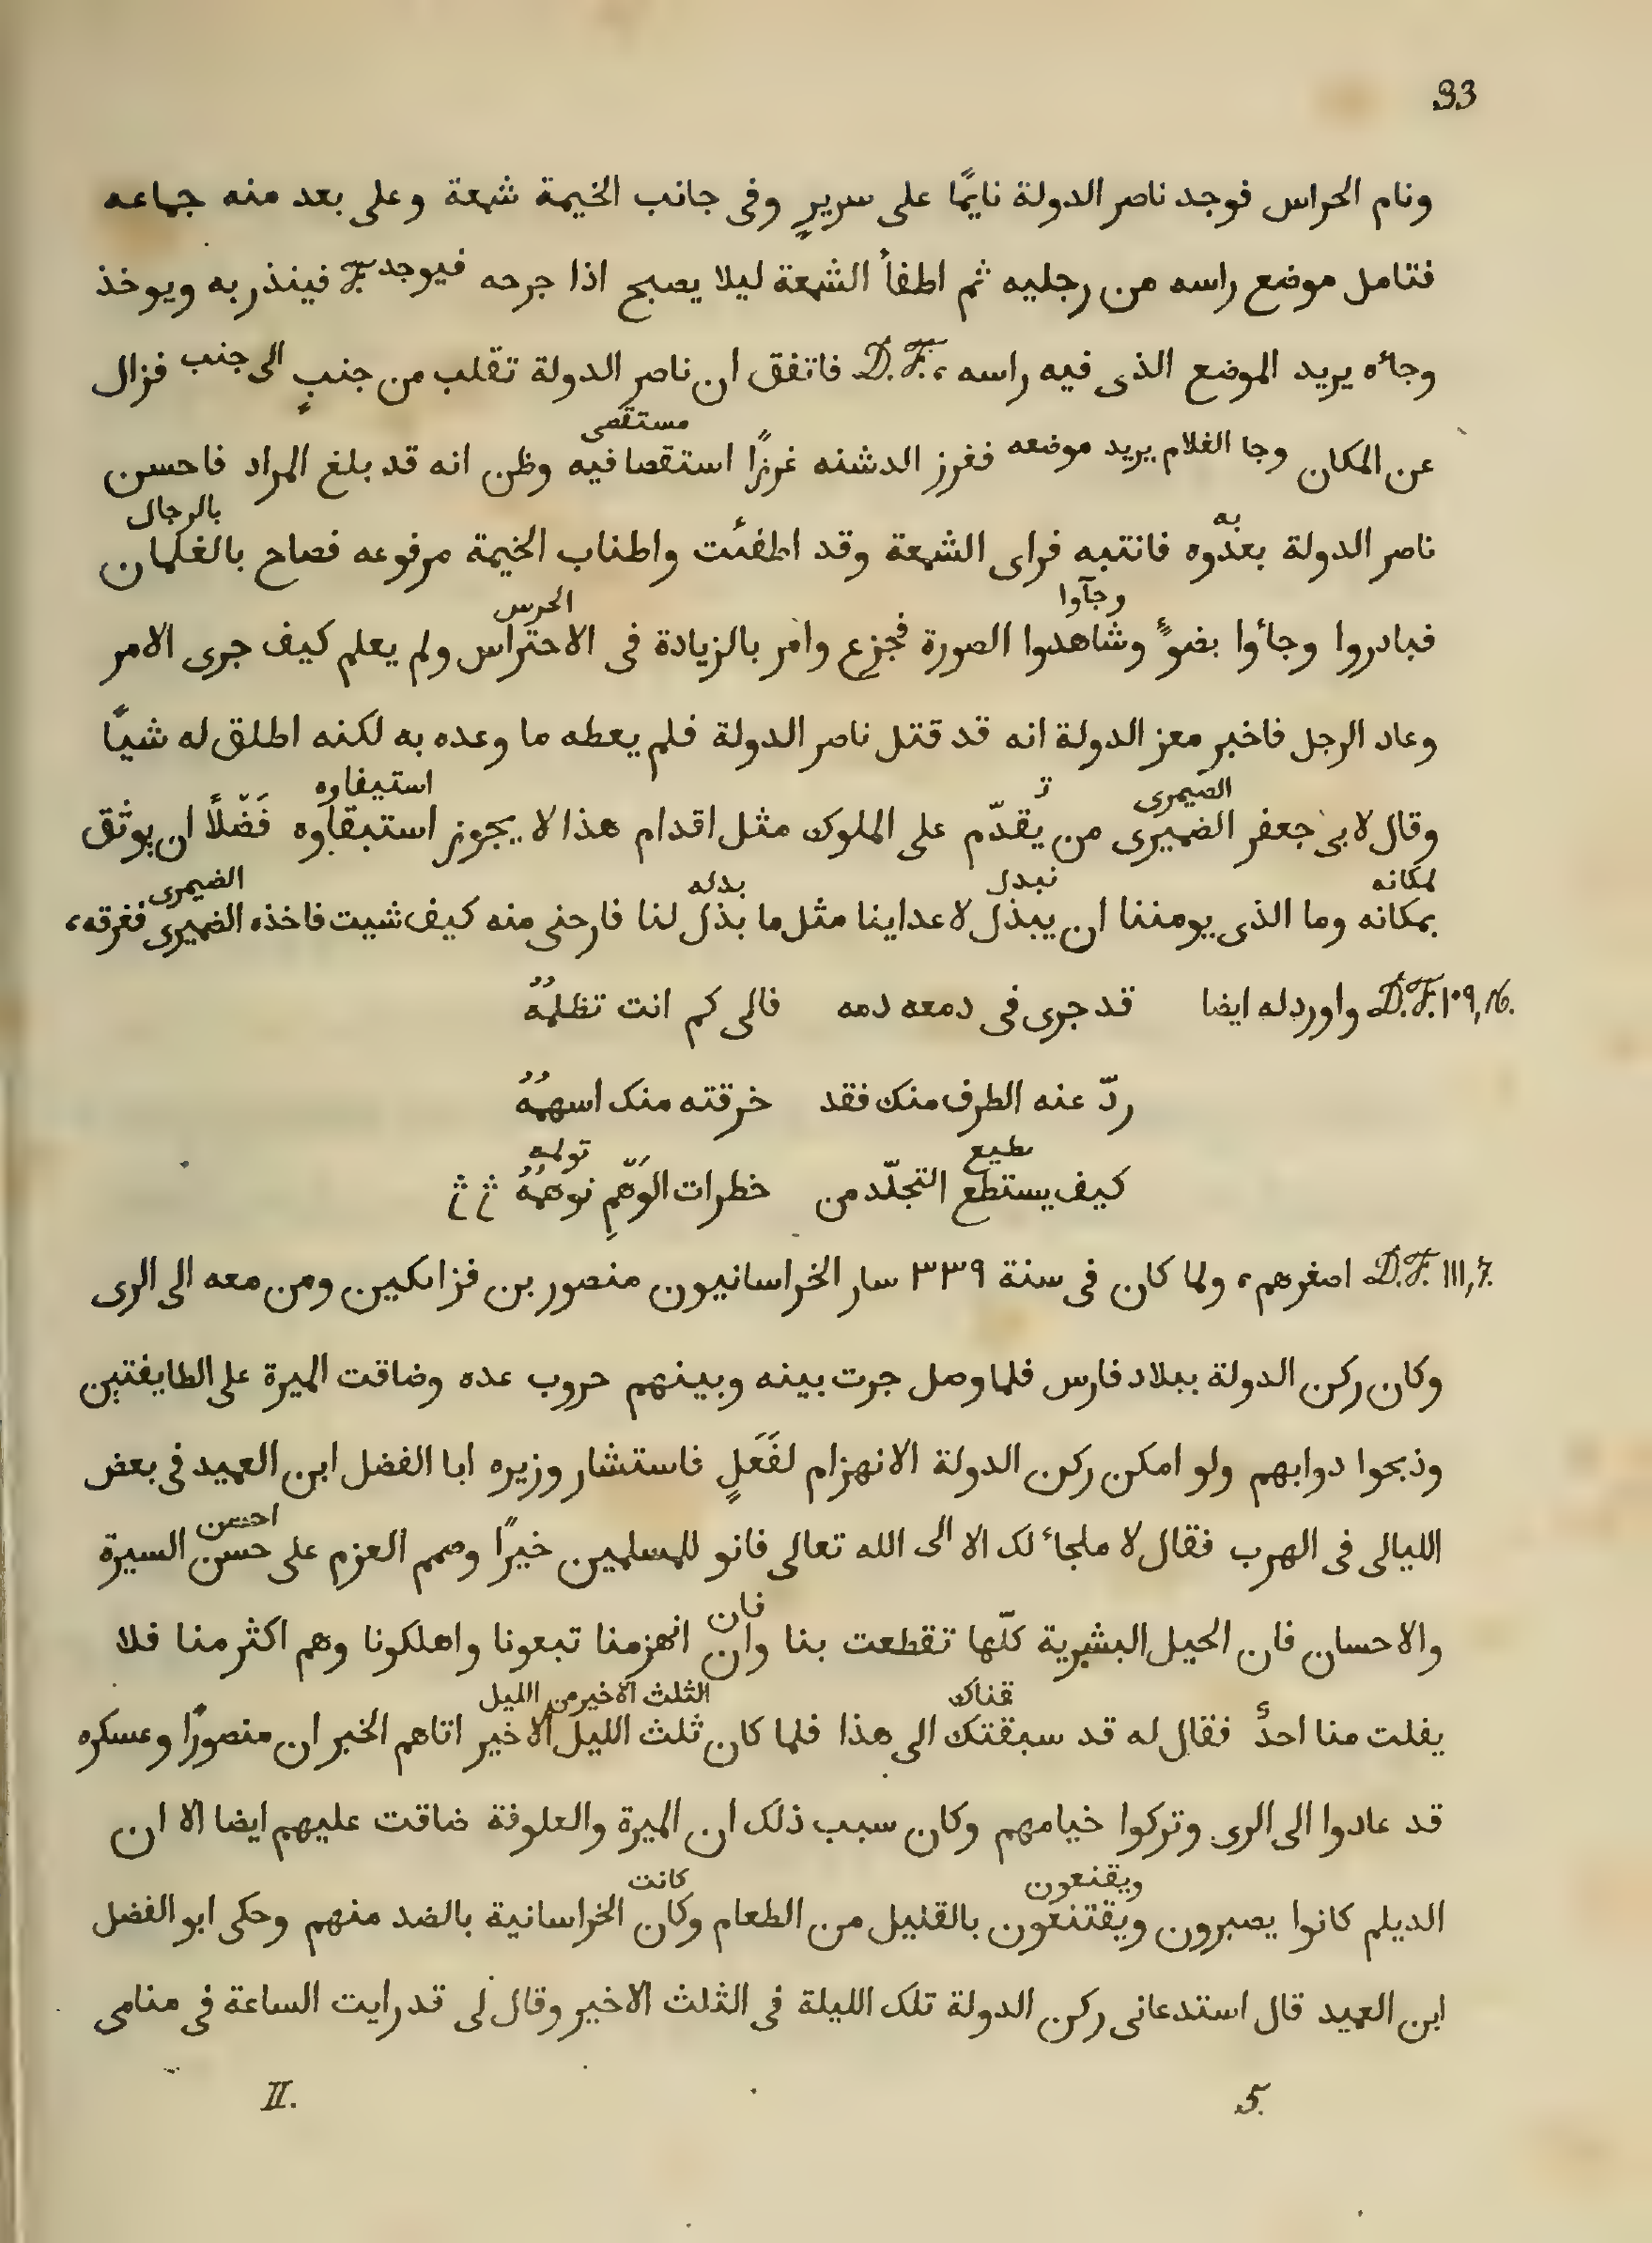 33
ونام الحراس فوجد ناصر الدولة نايمًا على سريرٍ وفى جانب الخيمة شمعة وعلى بعد منه جماعه
فتامل موضع راسه من رجليه ثم اطفأ الشمعة ليلا يصبح اذا جرحه فيوجد فينذر به ويوخذ
وجاءه يريد الموضع الذى فيه راسه، D.F. فاتفق ان ناصر الدولة تقلب من جنبٍ الى جنب فزال
مستقصى
عن المكان وجا الغلام يريد موضعه فغرز الدشنه غرزًا استقصا فيه وظن انه قد بلغ المراد فاحسن
به بالرجال
ناصر الدولة بعدوه فانتبه فراى الشمعة وقد اطفئت واطناب الخيمة مرفوعه فصاح بالغلمان
وجآوا الحرس
فبادروا وجاءوا بضوءٍ وشاهدوا الصورة فجزع وامر بالزيادة فى الاحتراس ولم يعلم كيف جرى الامر
وعاد الرجل فاخبر معز الدولة انه قد قتل ناصر الدولة فلم يعطه ما وعده به لكنه اطلق له شيًا
الصيمرى ت استيفاوه
وقال لابى جعفر الضميرى من يقدّم على الملوك مثل اقدام هذا لا يجوز استبقاوه فَضْلًا ان يوثق
لمكانه نبدل بدله الضيمرى
بمكانه وما الذى يومننا ان يبذل لاعداينا مثل ما بذل لنا فارحنى منه كيف شيت فاخذه الضميرى فغرقه،
D.F. ١٠٩,16. واورد له ايضا قد جرى فى دمعه دمه فالى كم انت تظلمُهُ
ردّ عنه الطرف منك فقد خرقته منك اسهمُهُ
طيع تولمه
كيف يستطع التجلّد من خطرات الوَهْمِ نوهمُهُ
D.F. ١١١,7. اصغرهم، ولما كان فى سنة ٣٣٩ سار الخراسانيون منصور بن قزاىكين ومن معه الى الرى
وكان ركن الدولة ببلاد فارس فلما وصل جرت بينه وبينهم حروب عده وضاقت الميرة على الطايفتين
وذبحوا دوابهم ولو امكن ركن الدولة الانهزام لفَعَلٍ فاستشار وزيره ابا الفضل ابن العميد فى بعض
احسن
الليالى فى الهرب فقال لا ملجاء لك الا الى الله تعالى فانو للمسلمين خيرًا وصمم العزم على حسن السيرة
فان
والاحسان فان الحيل البشرية كلّها تقطعت بنا وان انهزمنا تبعونا واهلكونا وهم اكثر منا فلا
قناك الثلث الاخير من الليل
يفلت منا احدٌ فقال له قد سبقتك الى هذا فلما كان ثلث الليل الاخير اتاهم الخبر ان منصورًا وعسكره
قد عادوا الى الرى وتركوا خيامهم وكان سبب ذلك ان الميرة والعلوفة ضاقت عليهم ايضا الا ان
ويقنعون كانت
الديلم كانوا يصبرون ويقتنعون بالقليل من الطعام وكان الخراسانية بالضد منهم وحكى ابو الفضل
ابن العميد قال استدعانى ركن الدولة تلك الليلة فى الثلث الاخير وقال لى قد رايت الساعة فى منامى
II. 5.